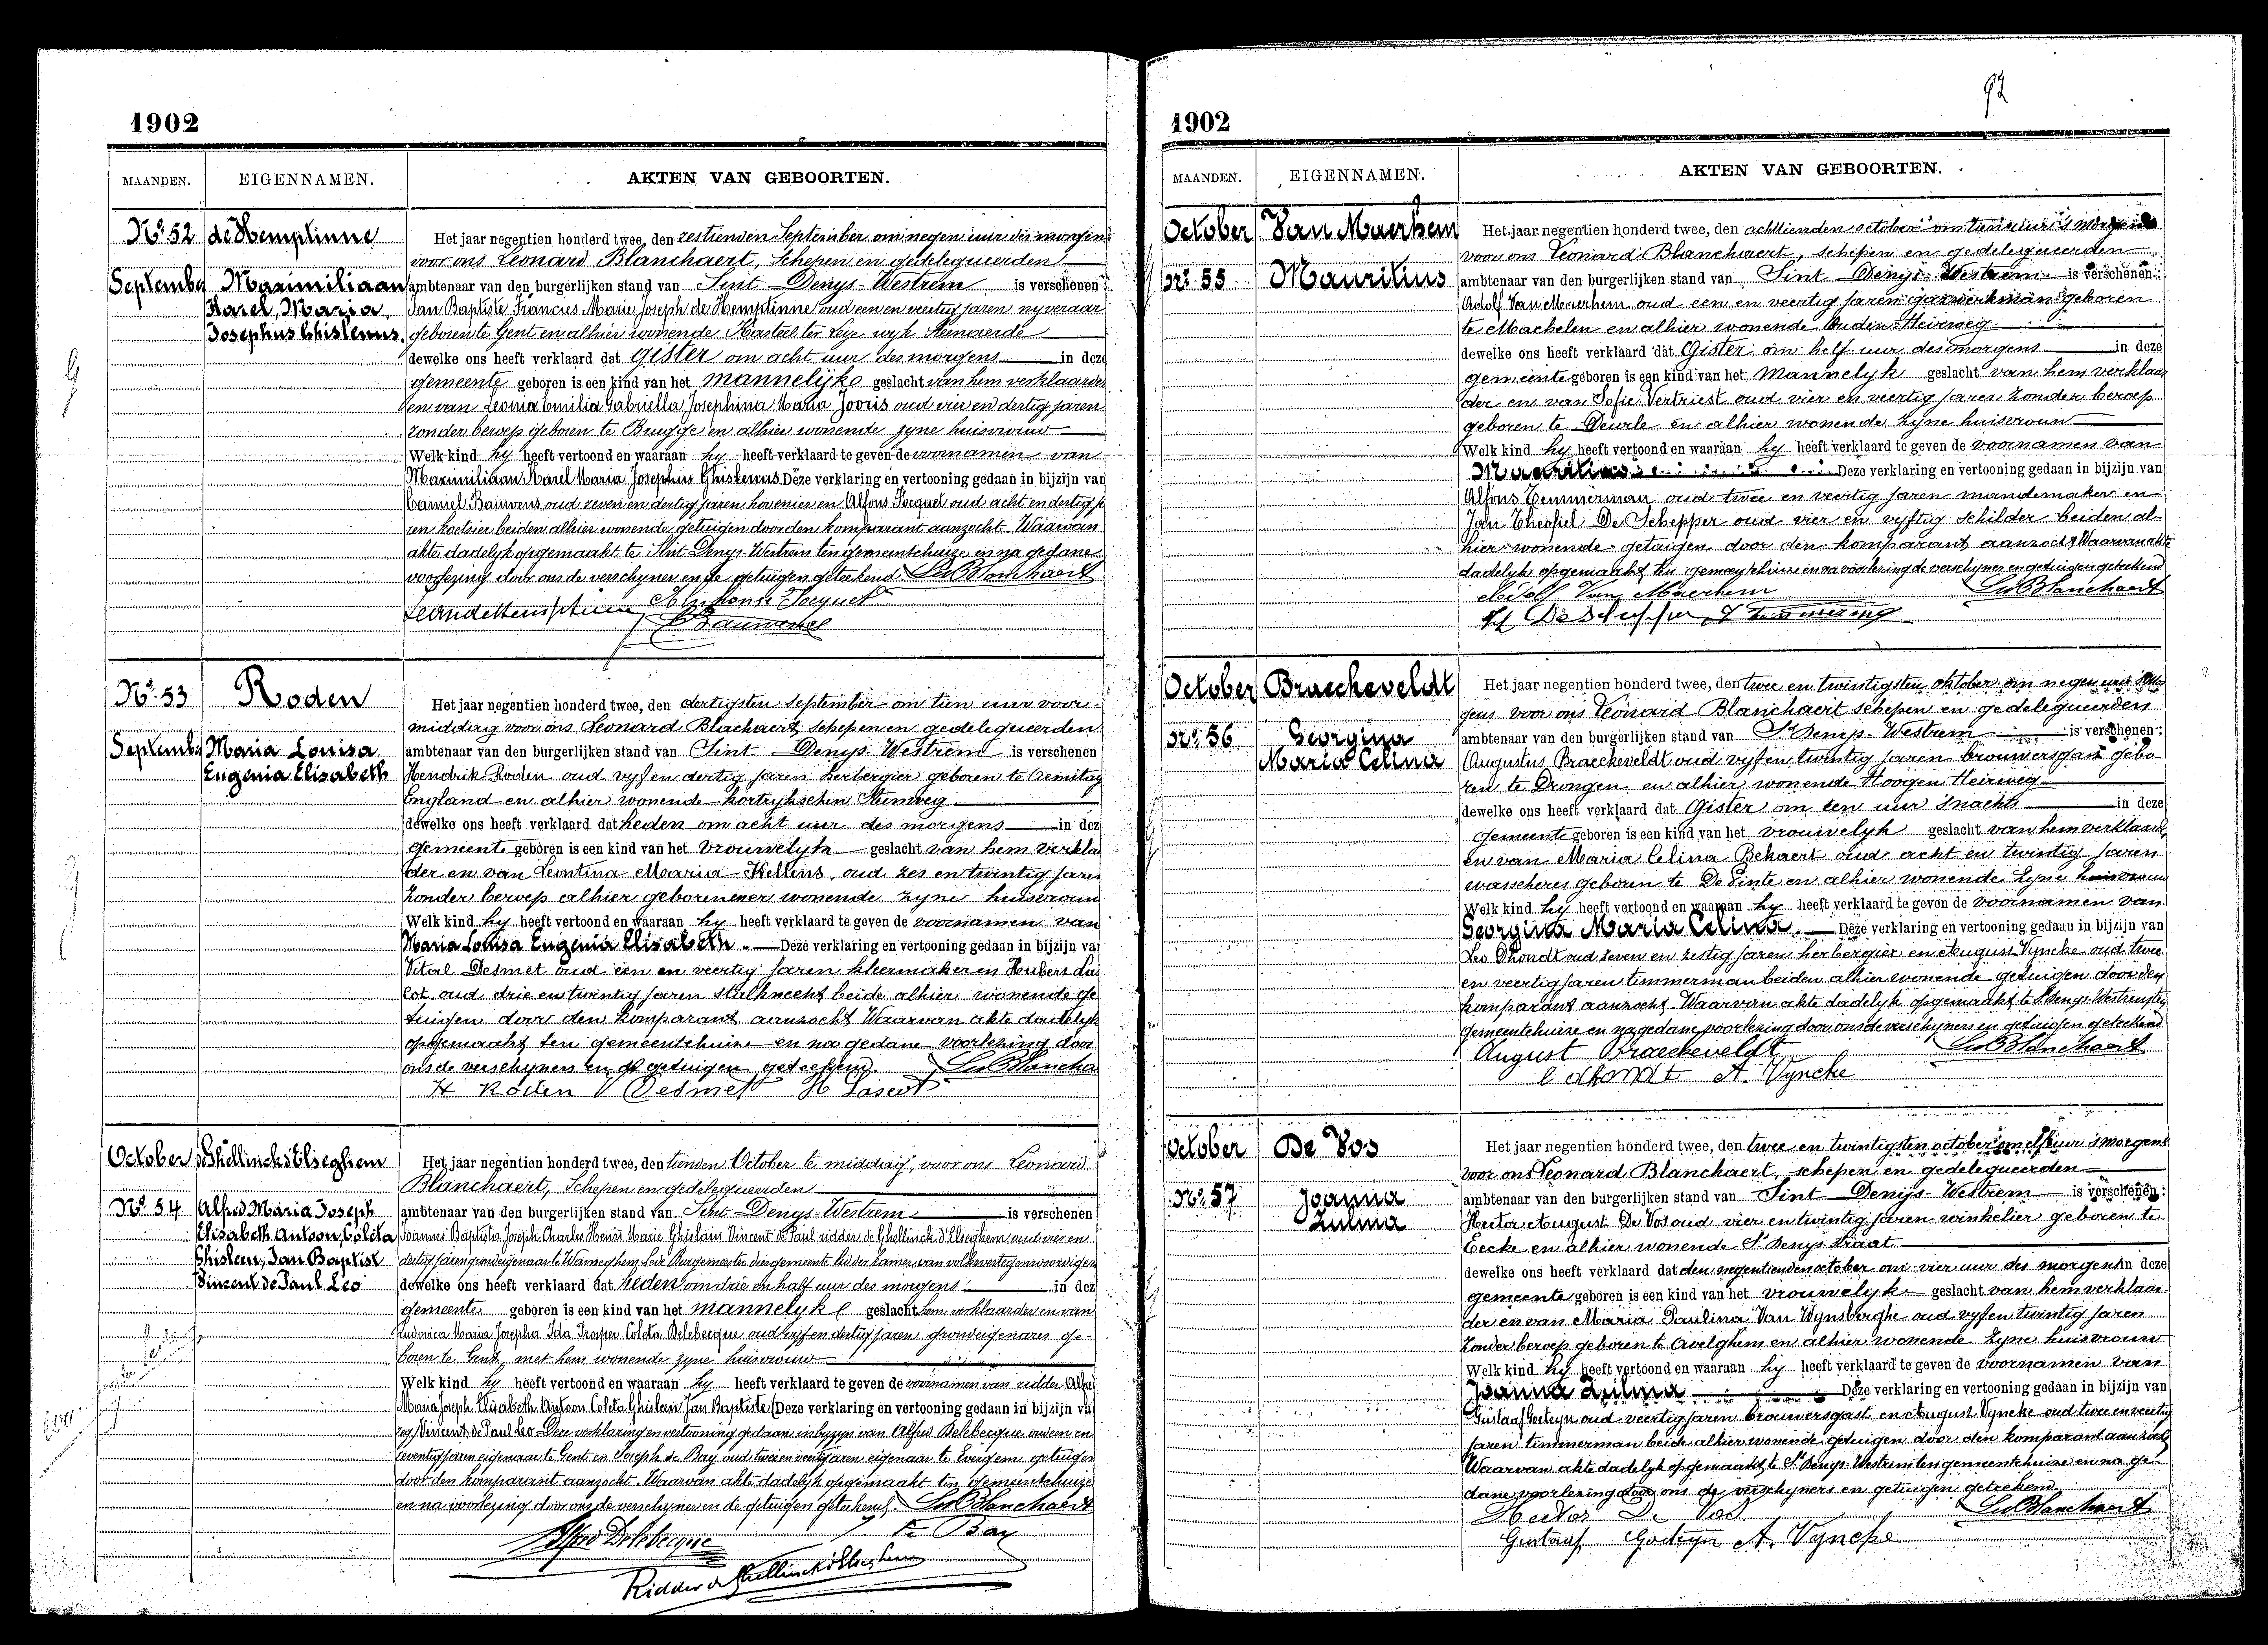 1902
MAANDEN. EIGENNAMEN. AKTEN VAN GEBOORTEN.
No. 52 de Hemptinne
September Maximiliaan
Karel, Maria,
Josephus Ghislenus.
Het jaar negentien honderd twee, den zestienden September om negen uur des morgens
voor ons Leonard Blanchaert, Schepen en gedelegueerden
ambtenaar van den burgerlijken stand van Sint Denys-Westrem is verschenen
Jan Baptiste Francies Marie Joseph de Hemptinne oud een en veertig jaren nyveraar
geboren te Gent en alhier wonende Kasteel ter Leye wyk Steenaerde
dewelke ons heeft verklaard dat gister om acht uur des morgens in deze
gemeente geboren is een kind van het mannelijke geslacht van hem verklaarder
en van Leonia Emilia Gabriella Josephina Maria Jooris oud vier en dertig jaren
zonder beroep geboren te Brugge en alhier wonende zyne huisvrouw
Welk kind hy heeft vertoond en waaraan hy heeft verklaard te geven de voornamen van
Maximiliaan Karel Maria Josephus Ghislenus Deze verklaring en vertooning gedaan in bijzijn van
Camiel Bauwens oud zeven en dertig jaren hovenier en Alfons Jocquet oud acht en dertig ja
ren koetsier beiden alhier wonende getuigen door den komparant aanzocht Waarvan
akte dadelyk opgemaakt te Sint-Denys-Westrem ten gemeentehuize en na gedane
voorlezing door ons de verschyner en de getuigen geteekend. Ls Blanchaert
No. 53 Roden
September Maria Louisa
Eugenia Elisabeth
Het jaar negentien honderd twee, den dertigsten september om tien uur voor
middag voor ons Leonard Blachaert, schepen en gedelegueerden
ambtenaar van den burgerlijken stand van Sint Denys Westrem is verschenen
Hendrik Roden oud vyf en dertig jaren herbergier geboren te Armitag
England en alhier wonende kortryhschen Steenweg
dewelke ons heeft verklaard dat heden om acht uur des morgens in dez
gemeente geboren is een kind van het vrouwelyk geslacht van hem verkla
der en van Leontina Maria Hellens, oud zes en twintig jaren
zonder beroep alhier geboren en er wonende zyne huisvrouw
Welk kind hy heeft vertoond en waaraan hy heeft verklaard te geven de voornamen van
Maria Louisa Eugenia Elisabeth. Deze verklaring en vertooning gedaan in bijzijn va
Vital Desmet oud een en veertig jaren kleermaker en Hubert Las
cot oud drie en twintig jaren stalknecht beide alhier wonende ge
tuigen door den komparant aanzocht Waarvan akte dadelyk
opgemaakt ten gemeentehuize en na gedane voorlezing door
ons de verschyners en de getuigen geteekend. Ls Blancha
H Roden V Desmet H Lascot
October de Ghellinck d'Elseghem
No. 54 Alfred Maria Joseph
Elisabeth Antoon, Coleta
Ghislein, Jan Baptist
Vincent de Paul Leo
Het jaar negentien honderd twee, den tienden October te middag, voor ons Leonard
Blanchaert, Schepen en gedelegueerden
ambtenaar van den burgerlijken stand van Sint Denys-Westrem is verschenen
Joannes Baptista Joseph Charles Henri Marie Ghislain Vincent de Paul ridder de Ghellinck d'Elseghem oud vier en
dertig jaren grondeigenaar te Wanneghem-Lede Burgemeester dier gemeente lid der kamer van volksvertegenwoordigers
dewelke ons heeft verklaard dat heden om drie en half uur des morgens in dez
gemeente geboren is een kind van het mannelyke geslacht hem verklaarder en van
Ludovica Maria Josepha Ida Prosper Coleta Delebecque oud vyf en dertig jaren grondeigenares ge-
boren te Gent, met hem wonende zyne huisvrouw
Welk kind hy heeft vertoond en waaraan hy heeft verklaard te geven de voornamen van ridder Alfre
Maria Joseph Elisabeth Antoon Coleta Ghislein Jan Baptiste (Deze verklaring en vertooning gedaan in bijzijn va
Vincent de Paul Leo. Deze verklaring en vertooning gedaan in byzyn van Alfred Delebecque oud een en
zeventig jaren eigenaar te Gent en Joseph de Bay oud twee en veertig jaren eigenaar te Evergem getuigen
door den komparant aanzocht. Waarvan akte dadelyk opgemaakt ten gemeentehuize
en na voorlezing door ons de verschyner en de getuigen geteekend. Ls Blanchaert
Alfred Delebecque de Bay
Ridder de Ghellinck d'Elseghem
92
1902
MAANDEN. EIGENNAMEN. AKTEN VAN GEBOORTEN.
October Van Maerhem
No. 55 Mauritius
Het jaar negentien honderd twee, den achttienden october om tien uur 's morgens
voor ons Leonard Blanchaert, schepen en gedelegueerden
ambtenaar van den burgerlijken stand van Sint Denys-Westrem is verschenen:
Adolf Van Maerhem oud een en veertig jaren gazwerkman geboren
te Machelen en alhier wonende Ouden Heirweg
dewelke ons heeft verklaard dat Gister om half uur des morgens in deze
gemeente geboren is een kind van het mannelyk geslacht van hem verklaar
der en van Sofie Vertriest oud vier en veertig jaren zonder beroep
geboren te Deurle en alhier wonende zyne huisvrouw
Welk kind hy heeft vertoond en waaraan hy heeft verklaard te geven de voornamen van
Mauritius Deze verklaring en vertooning gedaan in bijzijn van
Alfons Temmerman oud twee en veertig jaren mandemaker en
Jan Theofiel De Schepper oud vier en vyftig schilder beiden al-
hier wonende getuigen door den komparant aanzocht Waarvan akte
dadelyk opgemaakt ten gemeentehuize en na voorlezing de verschyner en getuigen geteekend
Adolf Van Maerhem Ls Blanchaert
October Braeckeveldt
No. 56 Georgina
Maria Celina
Het jaar negentien honderd twee, den twee en twintigsten oktober om negen uur 's mor
gens voor ons Leonard Blanchaert schepen en gedelegueerden
ambtenaar van den burgerlijken stand van St Denys-Westrem is verschenen:
Augustus Braeckeveldt oud vyf en twintig jaren brouwersgast gebo-
ren te Drongen en alhier wonende Hoogen Heirweg
dewelke ons heeft verklaard dat Gister om een uur 's nachts in deze
gemeente geboren is een kind van het vrouwelyk geslacht van hem verklaarder
en van Maria Celina Behaert oud acht en twintig jaren
wasscheres geboren te De Pinte en alhier wonende zyne huisvrouw
Welk kind hy heeft vertoond en waaraan hy heeft verklaard te geven de voornamen van
Georgina Maria Celina. Deze verklaring en vertooning gedaan in bijzijn van
Leo D'hondt oud zeven en zestig jaren herbergier en August Vyncke oud twee
en veertig jaren timmerman beiden alhier wonende getuigen door den
komparant aanzocht. Waarvan akte dadelyk opgemaakt te St Denys-Westrem ten
gemeentehuize en na gedane voorlezing door ons de verschyners en getuigen geteekend
August Braeckeveldt Ls Blanchaert
l dhondt A. Vyncke
October De Vos
No. 57 Joanna
Zulma
Het jaar negentien honderd twee, den twee en twintigsten october om elf uur 's morgens
voor ons Leonard Blanchaert, schepen en gedelegueerden
ambtenaar van den burgerlijken stand van Sint Denijs-Westrem is verschenen:
Hector August De Vos oud vier en twintig jaren winkelier geboren te
Eecke en alhier wonende St Denys straat
dewelke ons heeft verklaard dat den negentienden october om vier uur des morgens in deze
gemeente geboren is een kind van het vrouwelijk geslacht van hem verklaar-
der en van Maria Paulina Van Wynsberghe oud vyf en twintig jaren
zonder beroep geboren te Avelghem en alhier wonende zyne huisvrouw
Welk kind hy heeft vertoond en waaraan hy heeft verklaard te geven de voornamen van
Joanna Zulma Deze verklaring en vertooning gedaan in bijzijn van
Gustaaf Goeteyn oud veertig jaren brouwersgast en August Vyncke oud twee en veertig
jaren timmerman beide alhier wonende getuigen door den komparant aanzocht
Waarvan akte dadelyk opgemaakt te St Denys-Westrem ten gemeentehuize en na ge-
dane voorlezing door ons de verschyners en getuigen geteekend.
Hector De Vos Ls Blanchaert
Gustaaf Goeteyn A. Vyncke